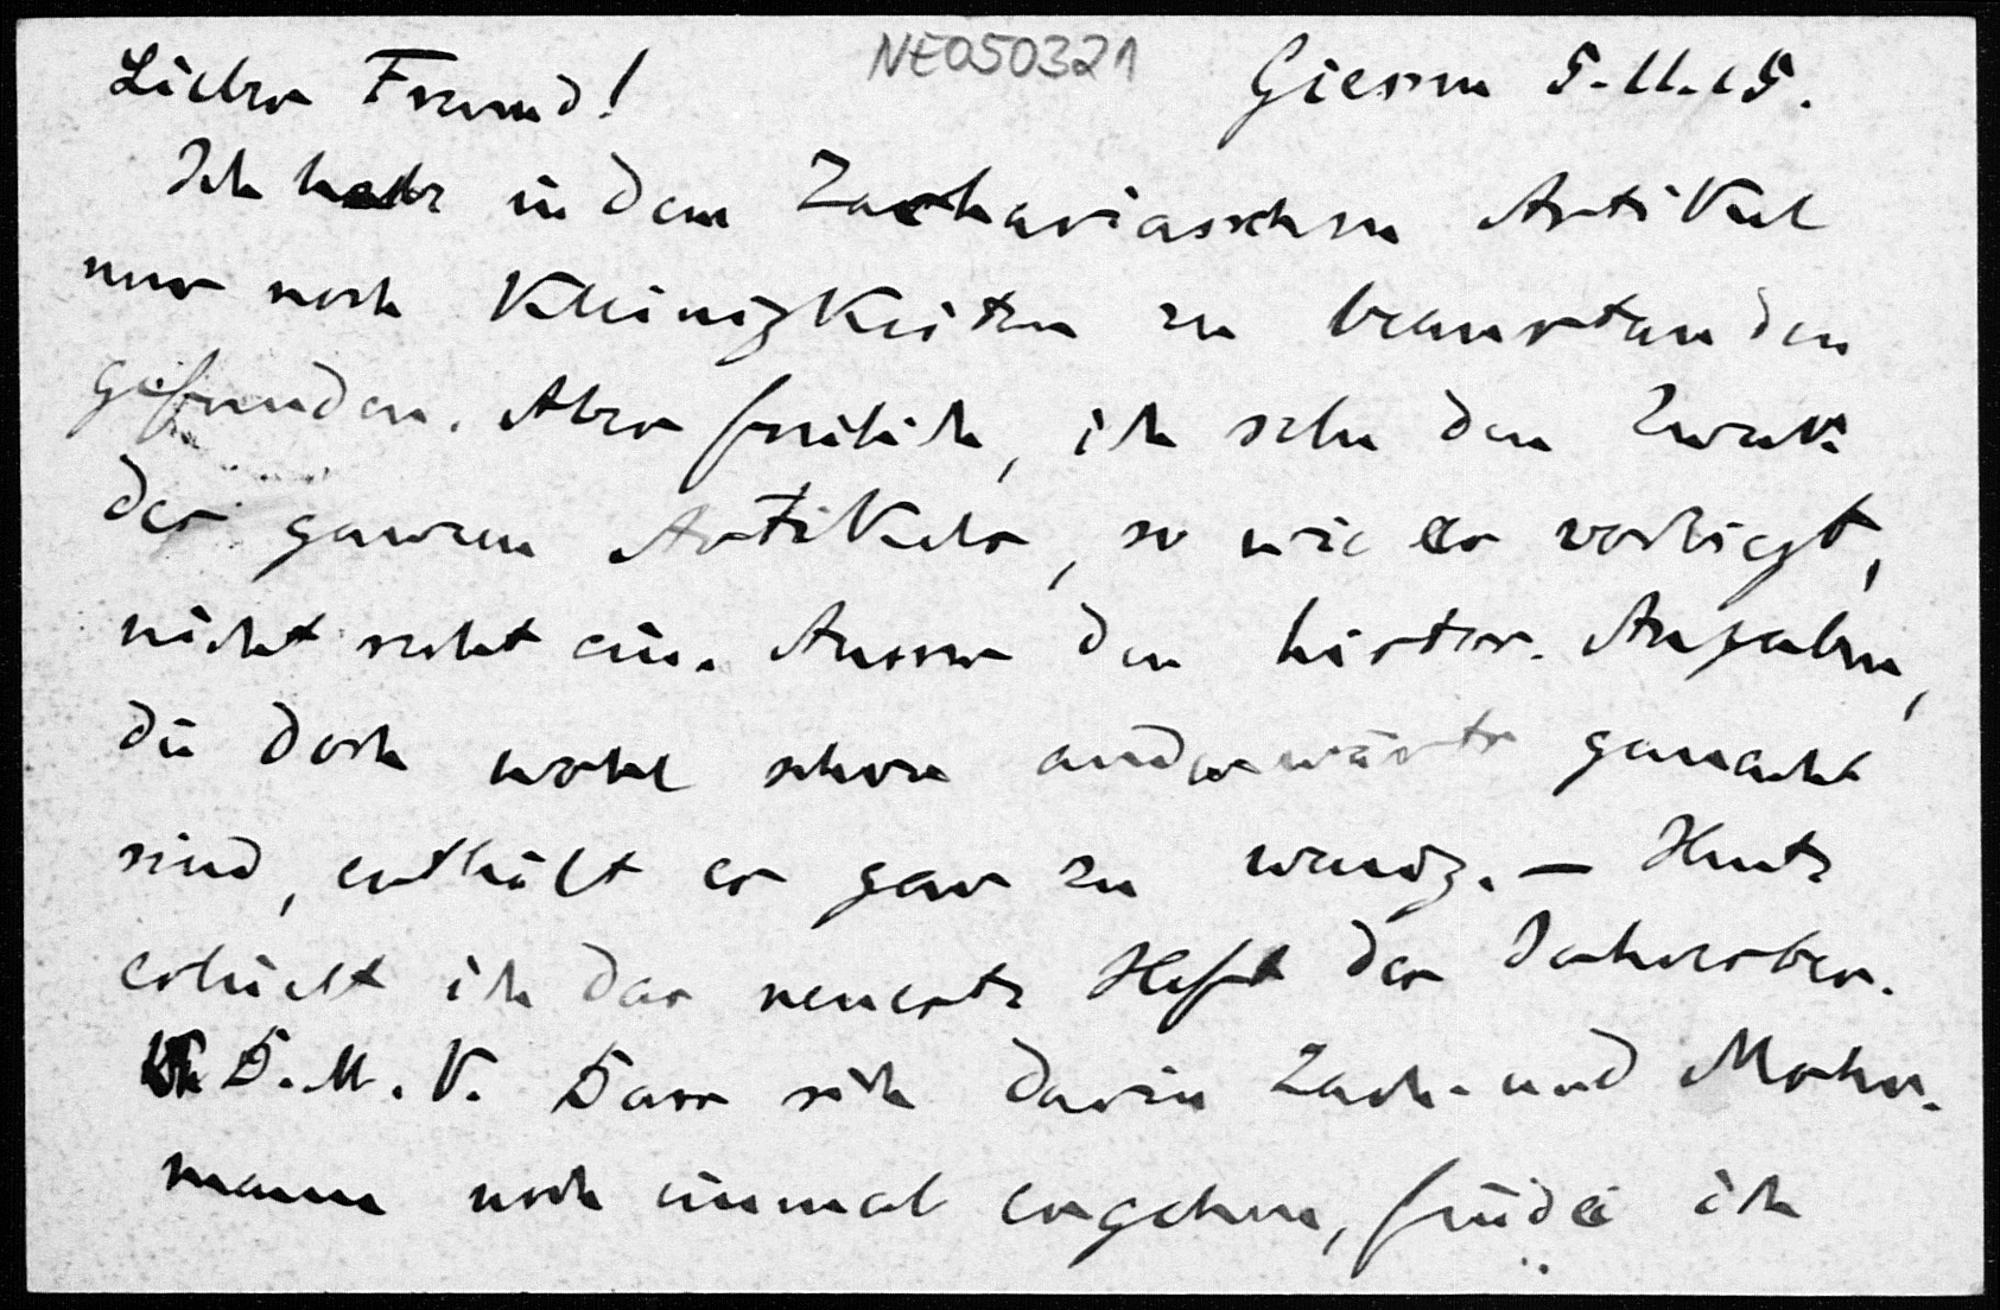 NE050321
Lieber Freund! Giessen 5.11.15.
Ich habe in dem Zachariasschen Artikel
nur noch Kleinigkeiten zu beanstanden
gefunden. Aber freilich, ich sehe den Zweck
des ganzen Artikels, so wie er vorliegt,
nicht recht ein. Ausser den histor. Angaben,
die doch wohl schon anderwärts gemacht
sind, enthält er gar zu wenig. – Heute
erhielt ich das neueste Heft der Jahresber.
D.M.V. Dass sich darin Zach. und Mohr-
mann noch einmal ergehen, finde ich